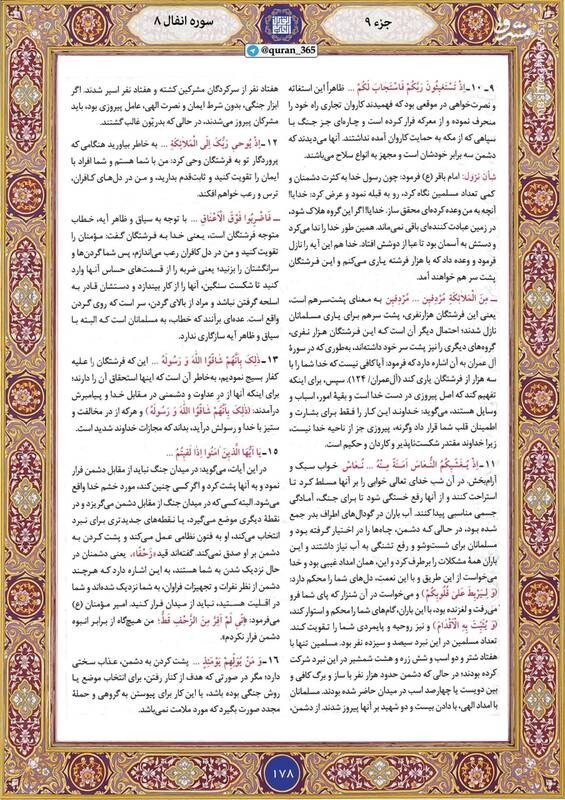 جزء ۹
سوره انفال ۸
@quran_365
۹ـ۱۰ـ إِذْ تَسْتَغِيثُونَ رَبَّكُمْ فَاسْتَجَابَ لَكُمْ ... ظاهراً این استغاثه
و نصرت‌خواهی در موقعی بود که فهمیدند کاروان تجاری راه خود را
منحرف نموده و از معرکه فرار کرده است و چاره‌ای جز جنگ با
سپاهی که از مکه به حمایت کاروان آمده نداشتند. آنها می‌دیدند که
دشمن سه برابر خودشان است و مجهز به انواع سلاح می‌باشند.
شأن نزول: امام باقر (ع) فرمود: چون رسول خدا به کثرت دشمنان و
کمی تعداد مسلمین نگاه کرد، رو به قبله نمود و عرض کرد: خدایا!
آنچه به من وعده کرده‌ای محقق ساز. خدایا! اگر این گروه هلاک شود،
در زمین عبادت کننده‌ای باقی نمی‌ماند. همین طور خدا را ندا می‌کرد
و دستش به آسمان بود تا عبا از دوشش افتاد. خدا هم این آیه را نازل
فرمود و وعده داد که با هزار فرشته یاری می‌کنم و این فرشتگان
پشت سر هم خواهند آمد.
ـ مِنَ الْمَلَائِكَةِ مُرْدِفِينَ ... مُرْدِفِینَ به معنای پشت‌سرهم است،
یعنی این فرشتگان هزارنفری، پشت سرهم برای یاری مسلمانان
نازل شدند؛ احتمال دیگر آن است که این فرشتگان هزار نفری،
گروه‌های دیگری را نیز پشت سر خود داشته‌اند، به‌طوری که در سورۀ
آل عمران به آن اشاره دارد که فرمود: آیا کافی نیست که خدا شما را با
سه هزار از فرشتگان یاری کند (آل‌عمران/ ۱۲۴). سپس، برای اینکه
تفهیم کند که اصل پیروزی در دست خدا است و بقیۀ امور، اسباب و
وسایل هستند، می‌گوید: خداوند این کار را فقط برای بشارت و
اطمینان قلب شما قرار داد وگرنه، پیروزی جز از ناحیه خدا نیست،
زیرا خداوند مقتدر شکست‌ناپذیر و کاردان و حکیم است.
۱۱ـ إِذْ يُغَشِّيكُمُ النُّعَاسَ أَمَنَةً مِنْهُ ... نُعَاسَ خواب سبک و
آرام‌بخش. در آن شب خدای تعالی خوابی را بر آنها مسلط کرد تا
استراحت کنند و از آنها رفع خستگی شود تا برای جنگ، آمادگی
جسمی مناسبی پیدا کنند. آب باران در گودال‌های اطراف بدر جمع
شده بود، در حالی که دشمن، چاه‌ها را در اختیار گرفته بود و
مسلمانان برای شست‌وشو و رفع تشنگی به آب نیاز داشتند و این
باران همۀ مشکلات را برطرف کرد و این، همان امداد غیبی بود و خدا
می‌خواست از این طریق و با این نعمت، دل‌های شما را محکم دارد:
(وَ لِيَرْبِطَ عَلَىٰ قُلُوبِكُمْ) و می‌خواست در آن شنزار که پای شما فرو
می‌رفت و لغزنده بود، با این باران، گام‌های شما را محکم و استوار کند،
(وَ يُثَبِّتَ بِهِ الْأَقْدَامَ) و نیز روحیه و پایمردی شما را تقویت کند.
تعداد مسلمین در این نبرد سیصد و سیزده نفر بود. مسلمین تنها با
هفتاد شتر و دو اسب و شش زره و هشت شمشیر در این نبرد شرکت
کرده بودند؛ در حالی که دشمن حدود هزار نفر با ساز و برگ کافی و
بین دویست یا چهارصد اسب در میدان حاضر شده بودند. مسلمانان
با امداد الهی، با دادن بیست و دو شهید بر آنها پیروز شدند. از دشمن،
هفتاد نفر از سرکردگان مشرکین کشته و هفتاد نفر اسیر شدند. اگر
ابزار جنگی، بدون شرط ایمان و نصرت الهی، عامل پیروزی بود، باید
مشرکان پیروز می‌شدند، در حالی که بدریّون غالب گشتند.
۱۲ـ إِذْ يُوحِي رَبُّكَ إِلَى الْمَلَائِكَةِ ... به خاطر بیاورید هنگامی که
پروردگار تو به فرشتگان وحی کرد: من با شما هستم و شما افراد با
ایمان را تقویت کنید و ثابت‌قدم بدارید، و من در دل‌های کافران،
ترس و رعب خواهم افکند.
ـ فَاضْرِبُوا فَوْقَ الْأَعْنَاقِ ... با توجه به سیاق و ظاهر آیه، خطاب
متوجه فرشتگان است، یعنی خدا به فرشتگان گفت: مؤمنان را
تقویت کنید و من در دل کافران رعب می‌اندازم، پس شما گردن‌ها و
سرانگشتان را بزنید؛ یعنی ضربه را از قسمت‌های حساس آنها وارد
کنید تا شکست سنگین، آنها را از کار بیندازد و دستشان قادر به
اسلحه گرفتن نباشد و مراد از بالای گردن، سر است که روی گردن
واقع است. عده‌ای برآنند که خطاب، به مسلمانان است که البته با
سیاق و ظاهر آیه سازگاری ندارد.
۱۳ـ ذَٰلِكَ بِأَنَّهُمْ شَاقُّوا اللَّهَ وَ رَسُولَهُ ... این که فرشتگان را علیه
کفار بسیج نمودیم، به‌خاطر آن است که اینها استحقاق آن را دارند؛
برای اینکه آنها از در عداوت و دشمنی در مقابل خدا و پیامبرش
درآمدند: (ذَٰلِكَ بِأَنَّهُمْ شَاقُّوا اللَّهَ وَ رَسُولَهُ) و هرکه از در مخالفت و
ستیز با خدا و رسولش درآید، بداند که مجازات خداوند شدید است.
۱۵ـ يَا أَيُّهَا الَّذِينَ آمَنُوا إِذَا لَقِيتُمُ ...
در این آیات، می‌گوید: در میدان جنگ نباید از مقابل دشمن فرار
نمود و به آنها پشت کرد و اگر کسی چنین کند، مورد خشم خدا واقع
می‌شود. البته کسی که در میدان جنگ از مقابل دشمن می‌گریزد و در
نقطۀ دیگری موضع می‌گیرد، یا نقطه‌های جدیدتری برای نبرد
انتخاب می‌کند، او به فنون نظامی عمل می‌کند و پشت کردن به
دشمن بر او صدق نمی‌کند. گفته‌اند قید «زَحْفًا»، یعنی دشمنان در
حال نزدیک شدن به شما هستند، به این اشاره دارد که هرچند
دشمن از نظر نفرات و تجهیزات فراوان، به شما نزدیک شده‌اند و شما
در اقلیت هستید، نباید از میدان فرار کنید. امیر مؤمنان (ع)
می‌فرمود: «إنّی لَم أفِرَّ مِنَ الزَّحْفِ قَطُّ؛ من هیچ‌گاه از برابر انبوه
دشمن فرار نکردم».
۱۶ـ وَ مَنْ يُوَلِّهِمْ يَوْمَئِذٍ ... پشت کردن به دشمن، عذاب سختی
دارد؛ مگر در صورتی که هدف از کنار رفتن، برای انتخاب موضع یا
روش جنگی بوده باشد، یا این کار برای پیوستن به گروهی و حملۀ
مجدد صورت بگیرد که مورد ملامت نمی‌باشد.
۱۷۸